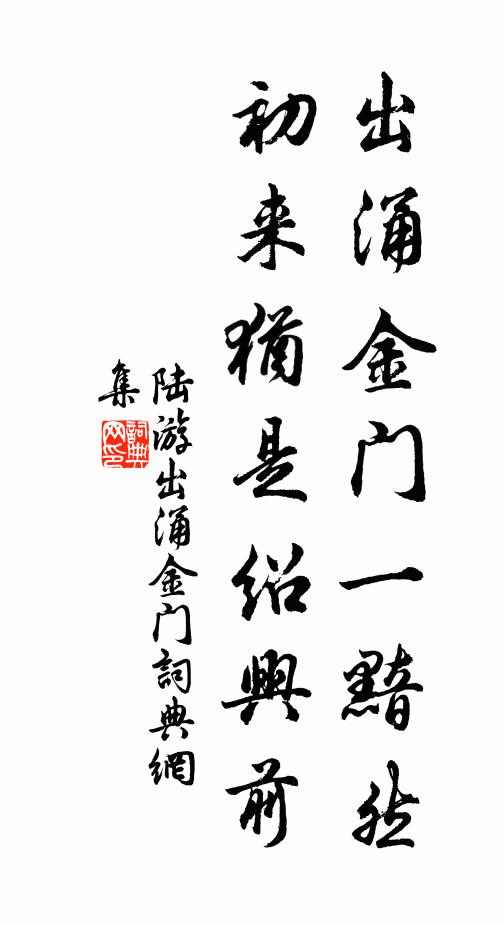 出涌金门一黯然
初来犹是绍興前
陆游出涌金门詞典網
集
詞典
网印